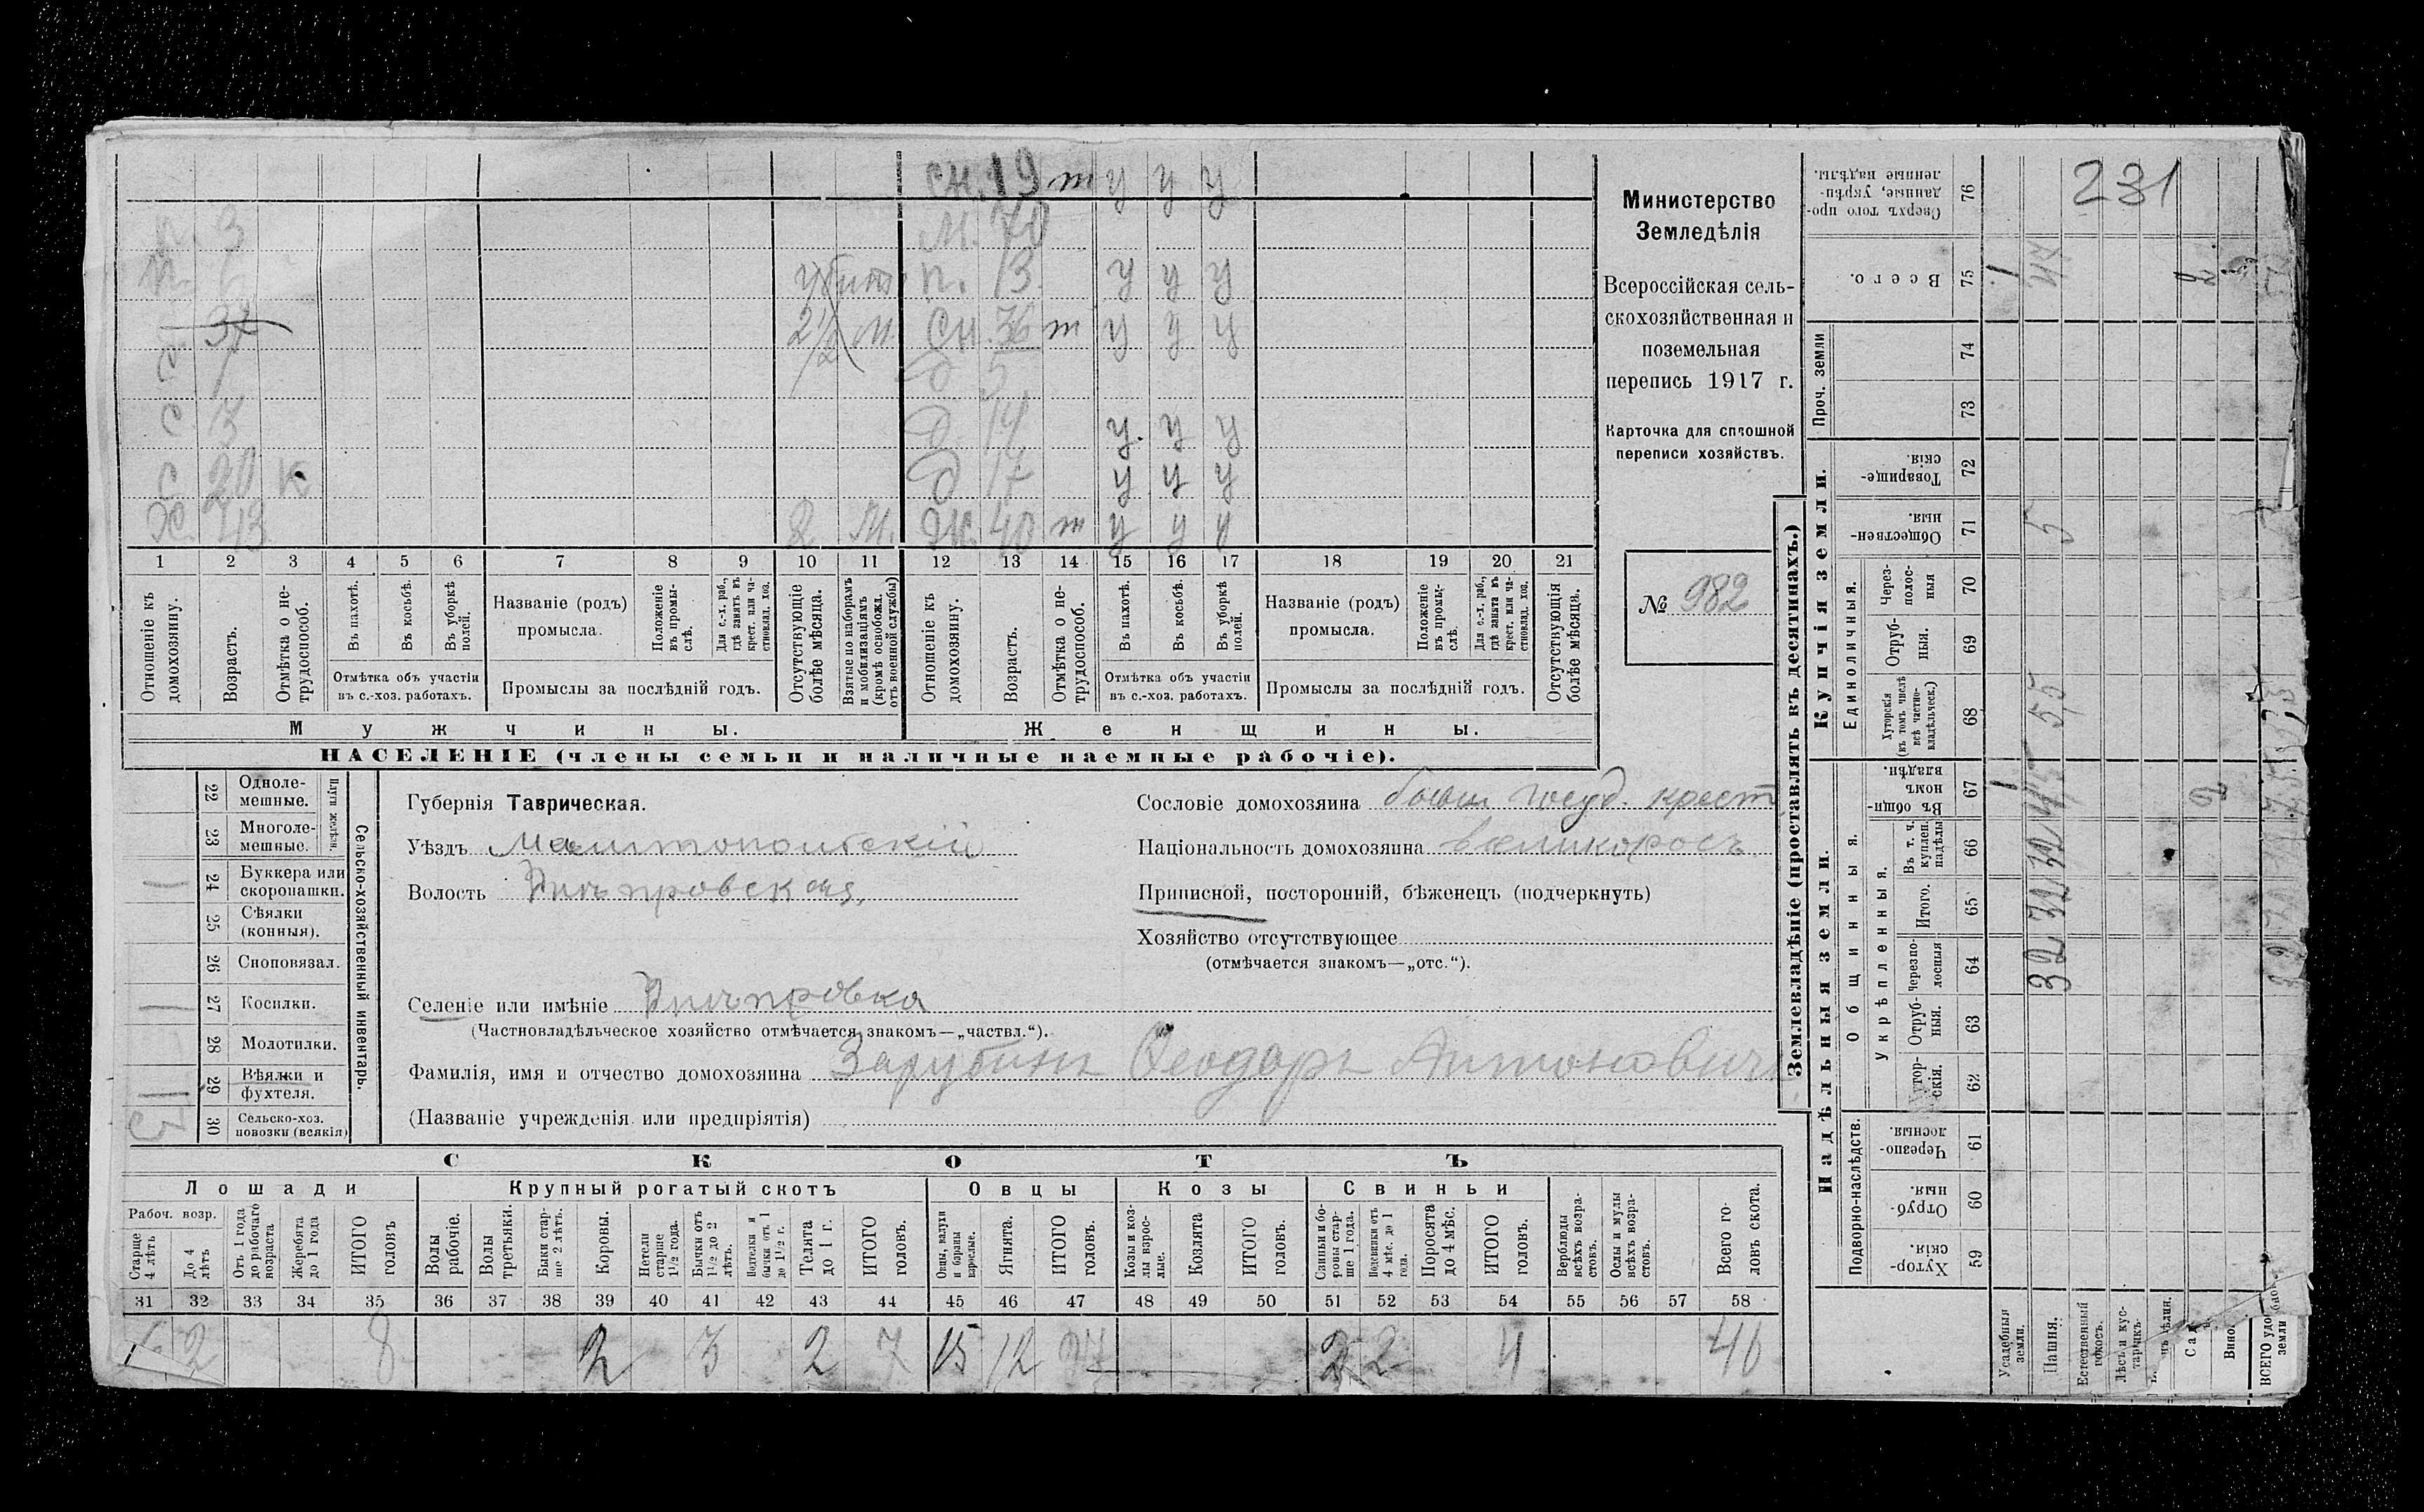 231
Министерство
Земледѣлія
Всероссійская сель-
скохозяйственная и
поземельная
перепись 1917 г.
Карточка для сплошной
переписи хозяйствъ.
№ 982
сн. 19 т у у у
п. 3 М. 70
п. 6 убитъ п. 13. у у у
32 2½ м. сн. 36 т у у у
с 1 д 5
с. 3 д. 14 у. у у
с 20 к д 17 у у у
Х. 43 2 м. ж. 40 т у у у
1 2 3 4 5 6 7 8 9 10 11 12 13 14 15 16 17 18 19 20 21
Отношеніе къ домохозяину.
Возрастъ.
Отмѣтка о не-трудоспособ.
Въ пахотѣ.
Въ косьбѣ.
Въ уборкѣ полей.
Отмѣтка объ участіи въ с.-хоз. работахъ.
Названіе (родъ) промысла.
Положеніе въ промы-слѣ.
Для с.-х. раб., гдѣ занятъ въ крест. или ча-стновлад. хоз.
Промыслы за послѣдній годъ.
Отсутствующіе болѣе мѣсяца.
Взятые по наборамъ и мобилизаціямъ (кромѣ освобожд. отъ военной службы)
Отношеніе къ домохозяину.
Возрастъ.
Отмѣтка о не-трудоспособ.
Въ пахотѣ.
Въ косьбѣ.
Въ уборкѣ полей.
Отмѣтка объ участіи въ с.-хоз. работахъ.
Названіе (родъ) промысла.
Положеніе въ промы-слѣ.
Для с.-х. раб., гдѣ занята въ крест. или ча-стновлад. хоз.
Промыслы за послѣдній годъ.
Отсутствующія болѣе мѣсяца.
Мужчины.
Женщины.
НАСЕЛЕНІЕ (члены семьи и наличные наемные рабочіе).
22 Одноле-мешные.
23 Многоле-мешные.
Плуги желѣзн.
24 Буккера или скоропашки. 1
25 Сѣялки (конныя).
26 Сноповязал.
27 Косилки. 1
28 Молотилки.
29 Вѣялки и фухтеля. 1
30 Сельско-хоз. повозки (всякія) 2
Сельско-хозяйственный инвентарь.
Губернія Таврическая.
Уѣздъ Мелитопольскій
Волость Днѣпровская,
Селеніе или имѣніе Днѣпровка
(Частновладѣльческое хозяйство отмѣчается знакомъ—„частвл.“).
Фамилія, имя и отчество домохозяина Зарубинъ Ѳеодоръ Антоновичъ
(Названіе учрежденія или предпріятія)
Сословіе домохозяина бывш госуд. крест
Національность домохозяина великороссъ.
Приписной, посторонній, бѣженецъ (подчеркнуть)
Хозяйство отсутствующее
(отмѣчается знакомъ—„отс.“).
СКОТЪ
Лошади
Крупный рогатый скотъ
Овцы
Козы
Свиньи
Рабоч. возр.
Старше 4 лѣтъ
До 4 лѣтъ
Отъ 1 года до рабочаго возраста
Жеребята до 1 года
ИТОГО головъ
Волы рабочіе.
Волы третьяки.
Быки стар-ше 2 лѣтъ.
Коровы.
Нетели старше 1½ года.
Бычки отъ 1½ до 2 лѣтъ.
Подтелки и бычки отъ 1 до 1½ г.
Телята до 1 г.
ИТОГО головъ.
Овцы, валухи и бараны взрослые.
Ягнята.
ИТОГО головъ.
Козы и коз-лы взрос-лые.
Козлята
ИТОГО головъ.
Свиньи и бо-ровы стар-ше 1 года.
Подсвинки отъ 4 мѣс. до 1 года.
Поросята до 4 мѣс.
ИТОГО головъ.
Верблюды всѣхъ возра-стовъ.
Ослы и мулы всѣхъ возра-стовъ.
Всего го-ловъ скота.
31 32 33 34 35 36 37 38 39 40 41 42 43 44 45 46 47 48 49 50 51 52 53 54 55 56 57 58
6 2 8 2 3 2 7 15 12 27 2 2 4 46
Землевладѣніе (проставлять въ десятинахъ.)
Надѣльныя земли.
Купчія земли.
Проч. земли
Общинныя.
Укрѣпленныя.
Единоличныя.
Подворно-наслѣдств.
Сверхъ того про-данные, укрѣп-ленные надѣлы. 76
Всего. 75 1 44 2
74
73
Товарище-скія. 72
Обществен-ныя. 71 5
Через-полос-ныя 70
Отруб-ныя. 69
Хуторскія (въ томъ числѣ всѣ частно-владѣльческ.) 68 5,5
Въ общин-номъ владѣн. 67 1 2
Въ т. ч. куплен. надѣлы 66 32
Итого. 65 32
Черезпо-лосныя 64 32
Отруб-ныя. 63
Хутор-скія. 62
Черезпо-лосныя. 61
Отруб-ныя. 60
Хутор-скія. 59
Усадебныя земли.
Пашня.
Естественный покосъ.
Лѣсъ и кус-тарникъ.
Сад
Вино.
ВСЕГО удобной земли